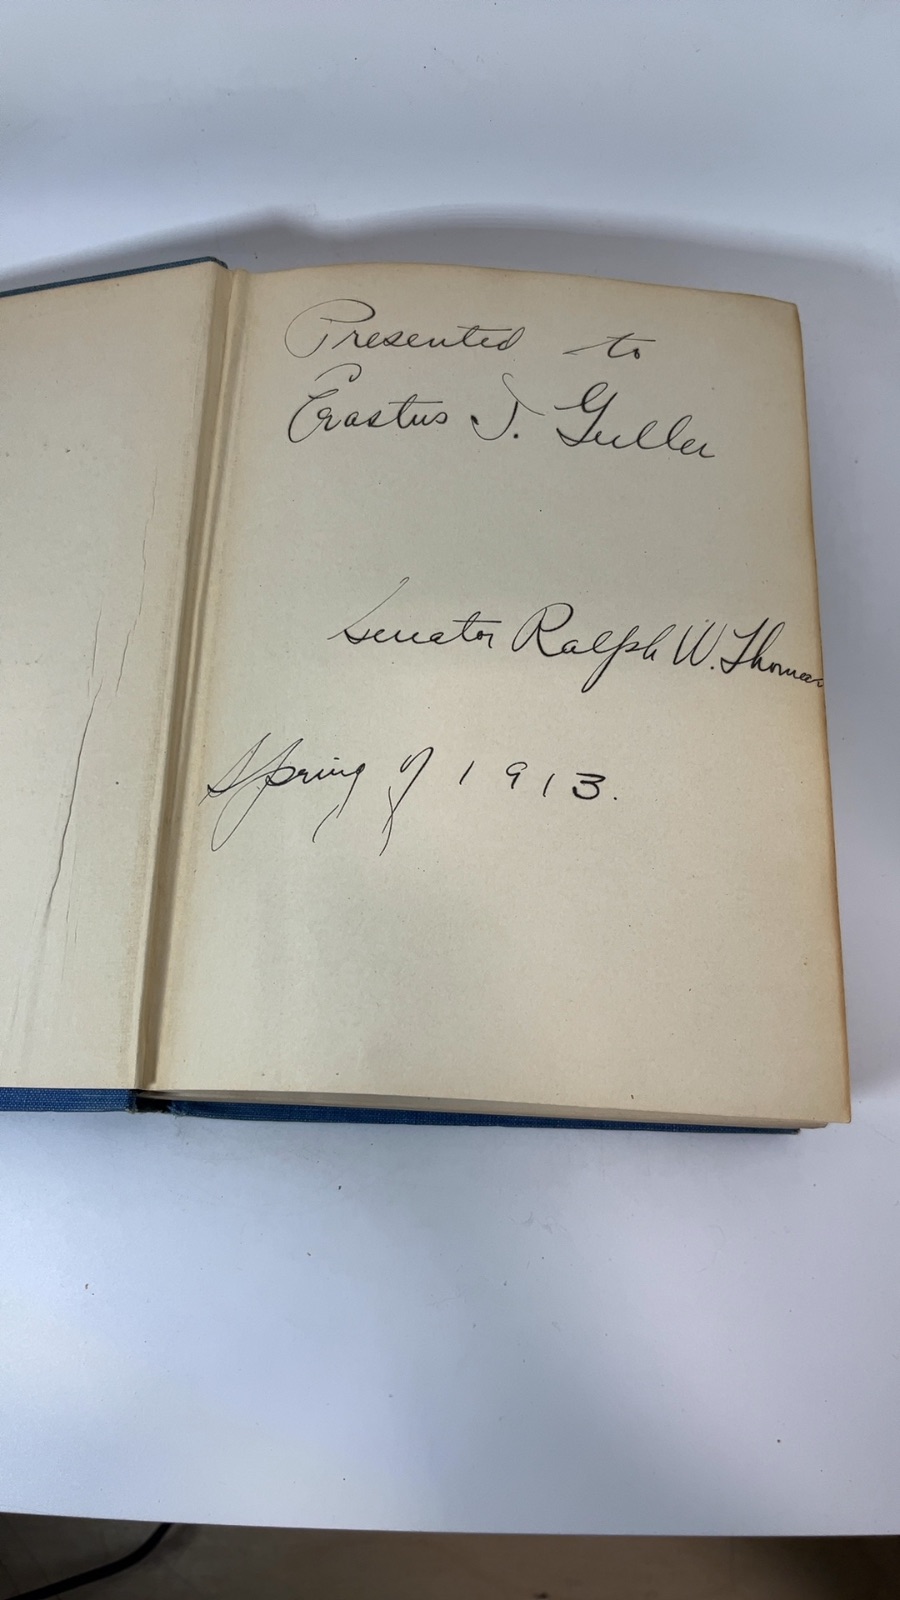 Presented to
Erastus J. Guller
Senator Ralph W. Thomas
Spring of 1913.